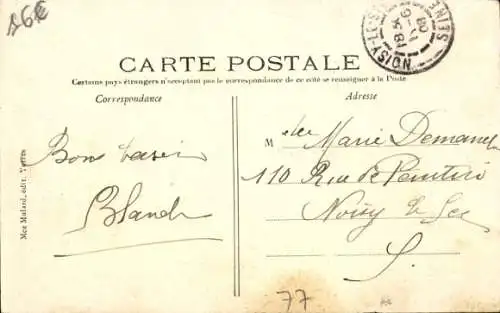 16€
NOISY-LE-SEC
SEINE
CARTE POSTALE
Certains pays étrangers n'acceptant pas la correspondance de ce côté se renseigner à la Poste
Correspondance
Adresse
Bons baisers
Blanche
Mlle Marie Demanet
110 Rue de
Noisy le Sec
S.
77
Mce Mulard, édit. Yerres